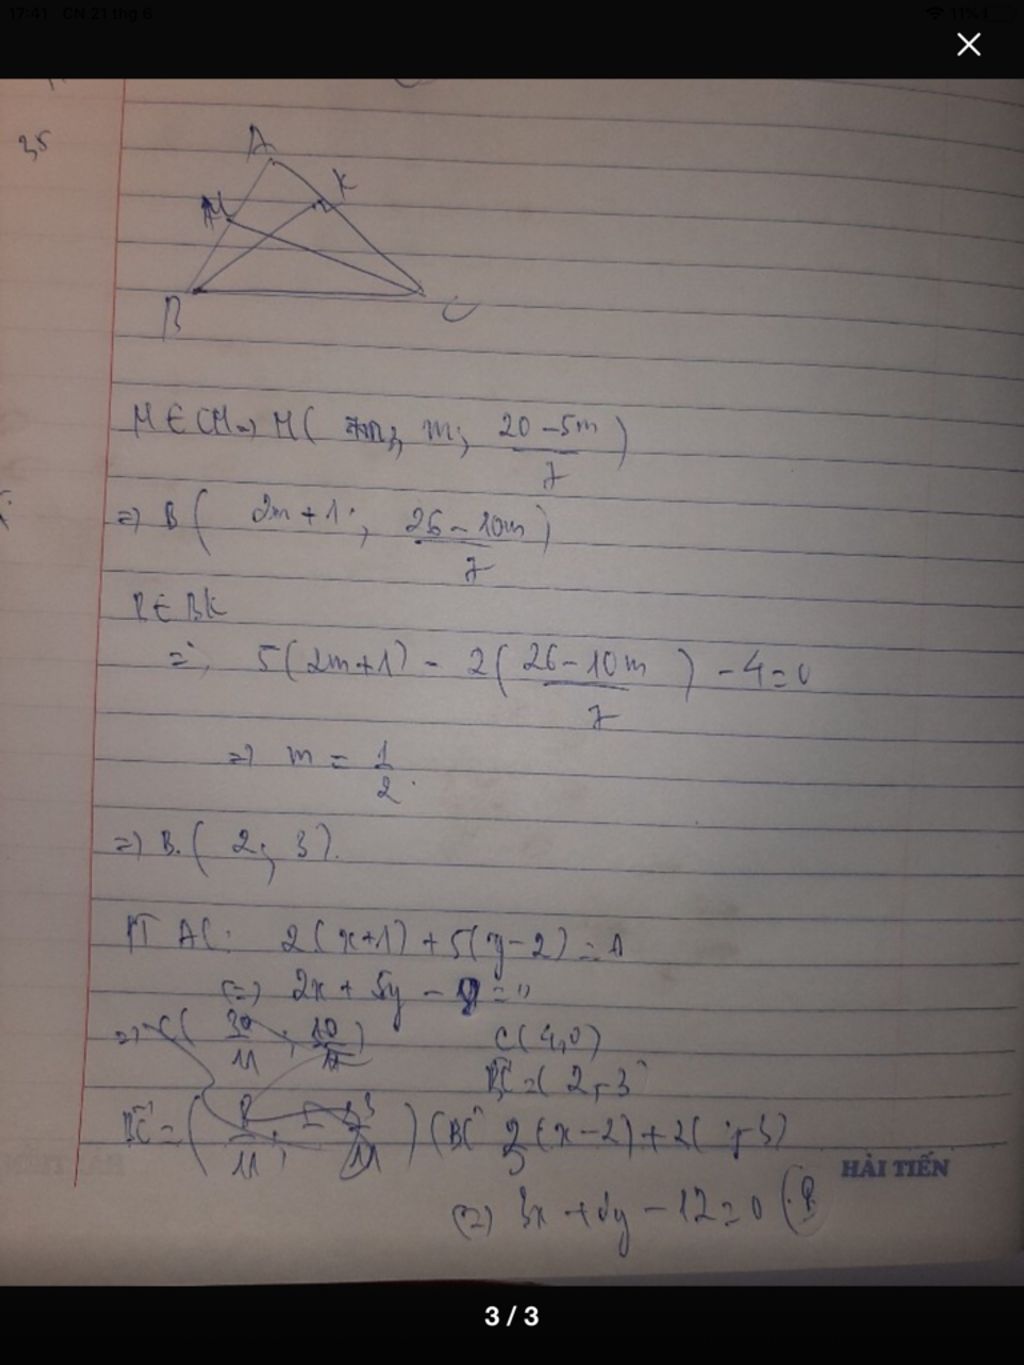 17:41 CN 21 thg 6
11%
35
A
K
M
B
C
M ∈ CM => M( m; (20 - 5m)/7 )
=> B( 2m + 1; (26 - 10m)/7 )
B ∈ BK
=> 5(2m+1) - 2( (26 - 10m)/7 ) - 4 = 0
=> m = 1/2
=> B( 2; 3).
PT AC: 2(x+1) + 5(y-2) = 0
(=) 2x + 5y - = 0
=> C( 30/11 ; 10/11 )
C(4,0)
BC = ( 2; -3
BC = (
(BC 3(x-2) + 2( y-3)
(=) 3x + 2y - 12 = 0
HẢI TIẾN
3 / 3